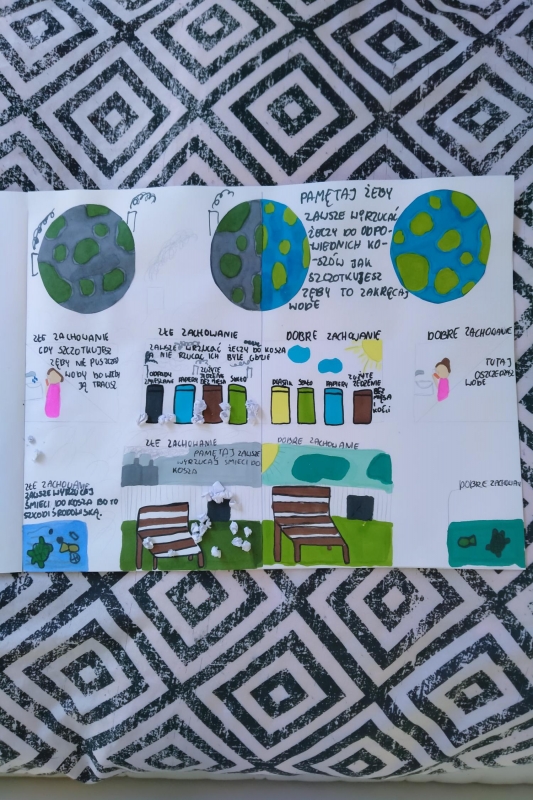 PAMĘTAJ ŻEBY
ZAWSZE WYRZUCAĆ
ŻECZY DO ODPO-
-WIEDNICH KO-
-SZÓW JAK
SZCZOTKUJESZ
ZĘBY TO ZAKRĘCAJ
WODE
ZŁE ZACHOWANIE
GDY SZCZOTKUJESZ
ZĘBY NIE PUSZCZAJ
WODY BO WTEDY
JĄ TRACISZ
ZŁE ZACHOWANIE
ZAWSZE WRZUCAJ ŻECZY DO KOSZA
A NIE RZUCAJ ICH BYLE GDZIE
ODPADY
ZMIESZANE
PAPIERY
ZUŻYTE
JEDZENIE
BEZ MIĘSA
SZKŁO
DOBRE ZACHOWANIE
PLASTIK
SZKŁO
PAPIERY
ZUŻYTE
JEDZENIE
BEZ MIĘSA
I
KOŚCI
DOBRE ZACHOWANIE
TUTAJ
OSZCZĘDZASZ
WODE
ZŁE ZACHOWANIE
PAMĘTAJ ZAWSZE
WYRZUCAJ ŚMIECI DO
KOSZA
DOBRE ZACHOWANIE
ZŁE ZACHOWANIE
ZAWSZE WYRZUCAJ
ŚMIECI DO KOSZA BO TO
SZKODZI ŚRODOWISKĄ.
DOBRE ZACHOWAN